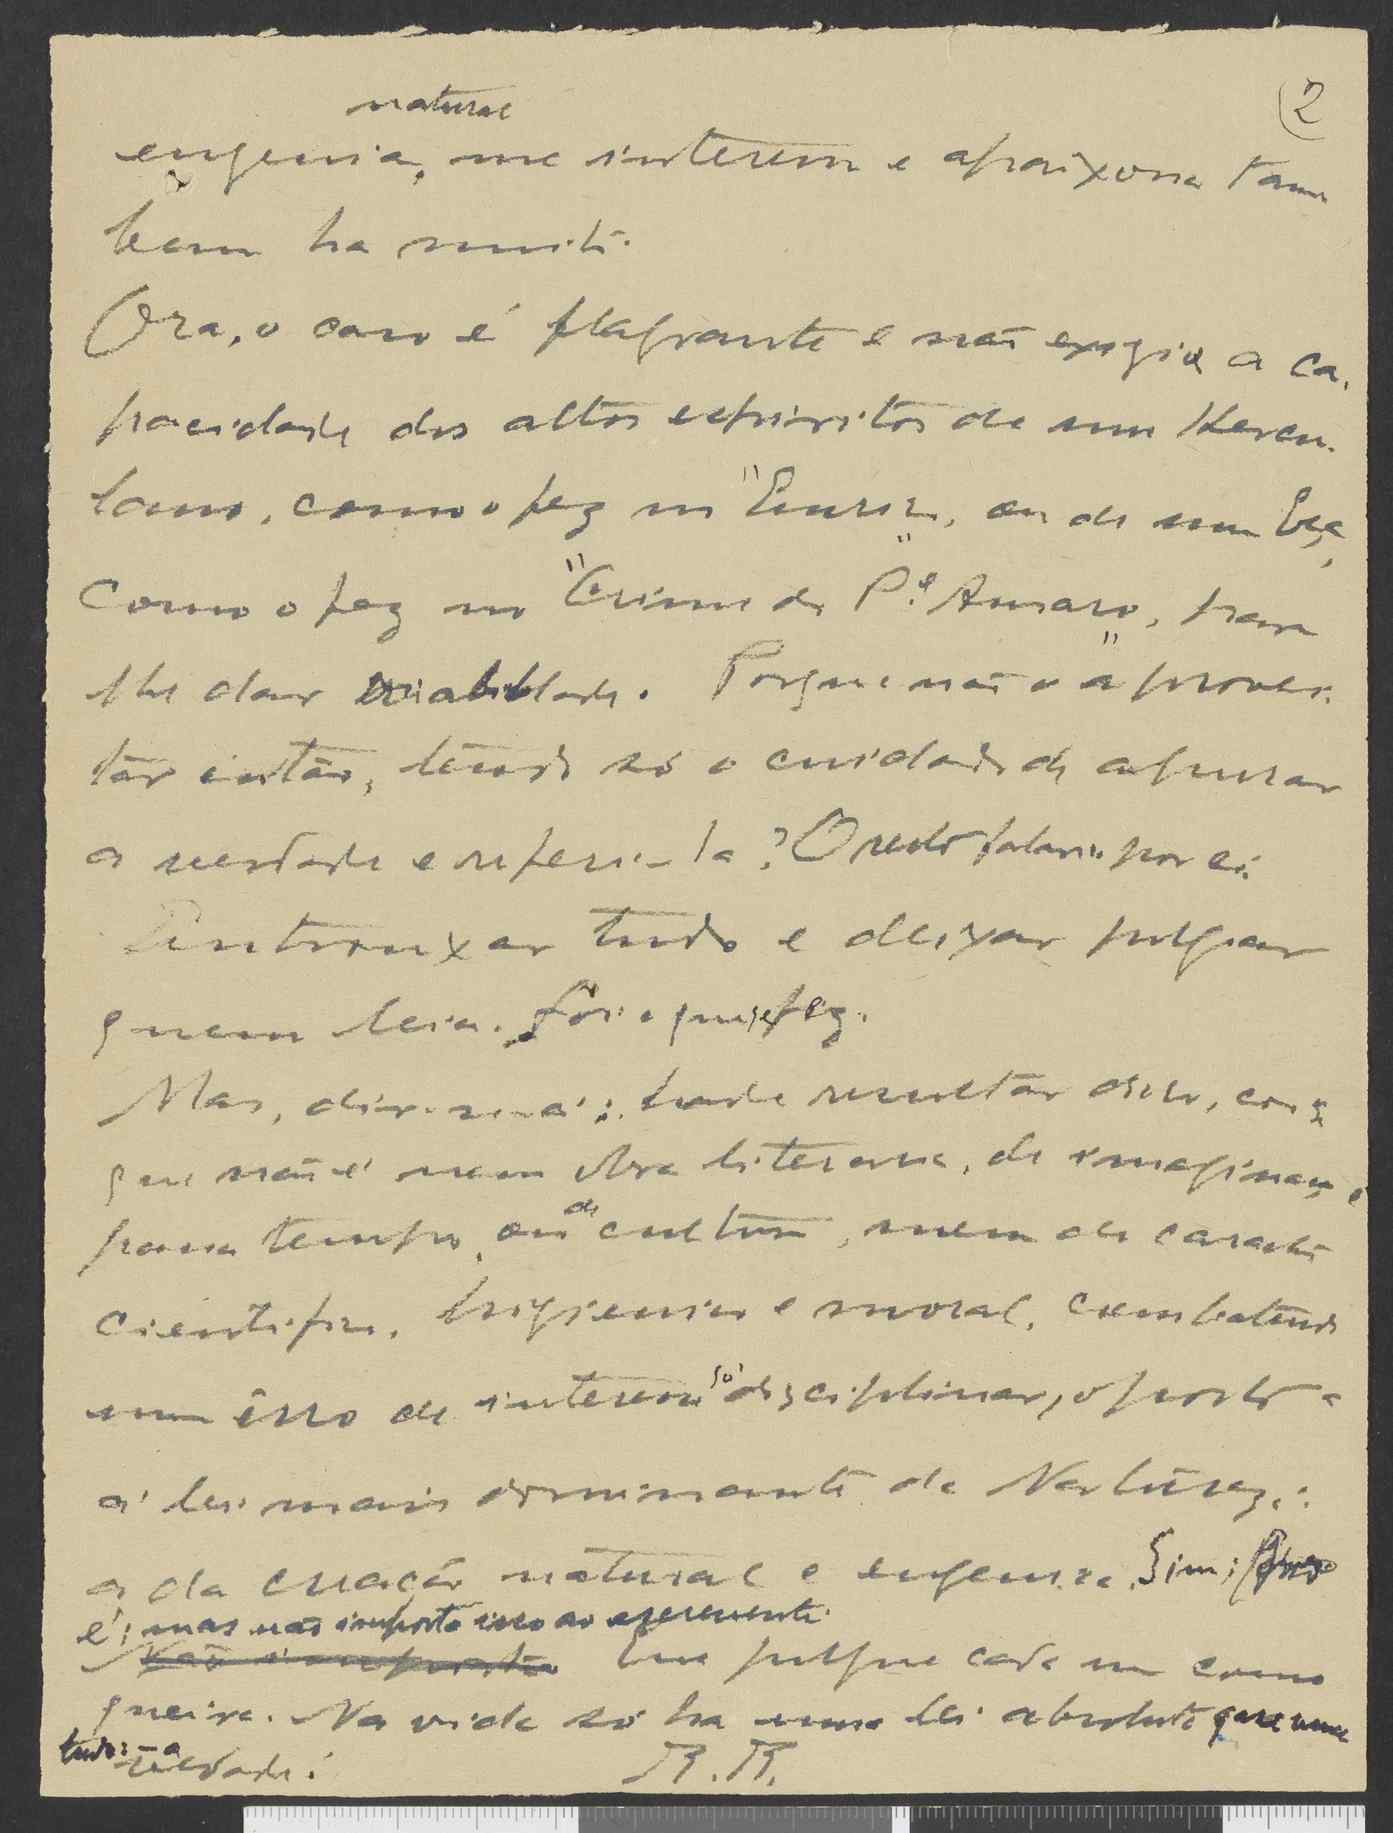 2
natural
eugenia, me interessa e apaixona tam
bem ha muito.
Ora, o caso é flagrante e não exigia a ca.
pacidade dos altos espiritos de um Hercu.
lano, como o fez no "Eurico", ou de um Eça,
como o fez no "Crime do P.e Amaro", para
lhe dar viabilidade. Porque não o aprovei.
tar então, tendo só o cuidado de apurar
a verdade e referi-la? O resto falaria por si.
Entrouxar tudo e deixar julgar
quem leia. Foi o que se fez.
Mas, dir-se-á: hade resultar disso, coisa
que não é nem obra literaria, de imaginação
para tempo, ou de cultura, nem de caracter
cientifico, higienico e moral, combatendo
um erro de interesse só disciplinar, oposto a
a' lei mais dominante da Natureza:
a da creação natural e eugenica. Sim;
é; mas não importa isso ao
Não importa Que julgue cada um como
queira. Na vida só ha uma lei absoluta que
tudo: - a
verdade!
R. R.